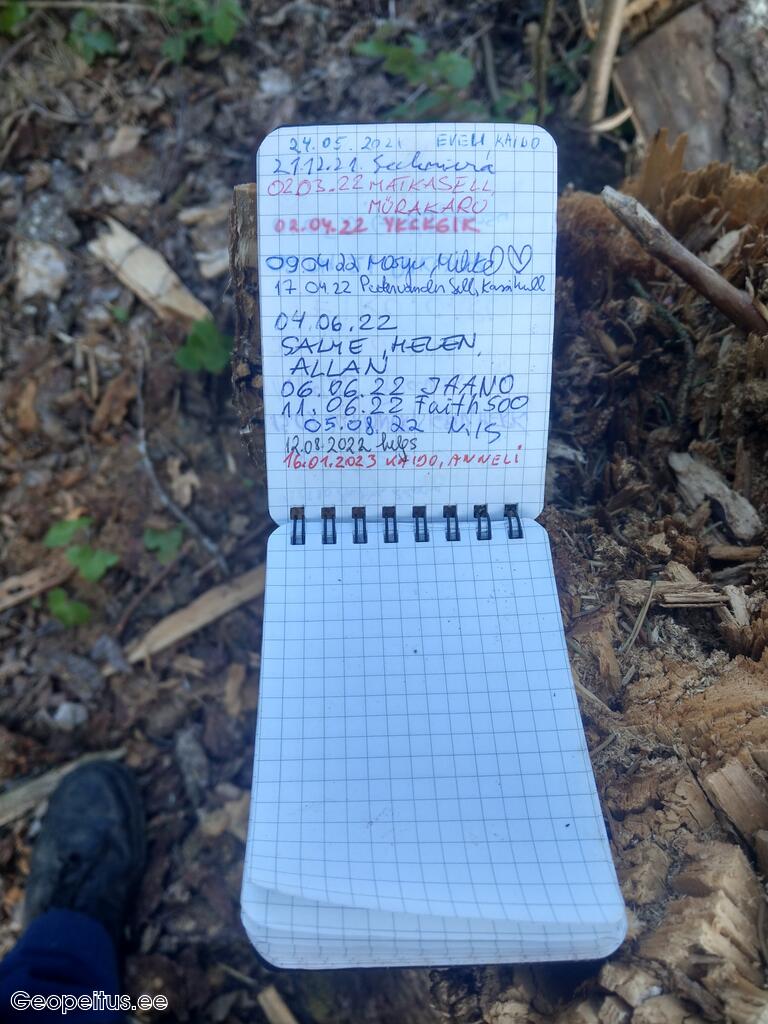 24.05.2021 EVELI, KAIDO
21.12.21.
02.03.22 MATKASELL,
MÕRAKARU
02.04.22
09.04.22
17 04 22
04.06.22
SALME, HELEN,
ALLAN
06.06.22 JAANO
11.06.22 Faith500
05.08.22 N/S
12.08.2022 helps
16.01.2023 KAIDO, ANNELI
Geopeitus.ee